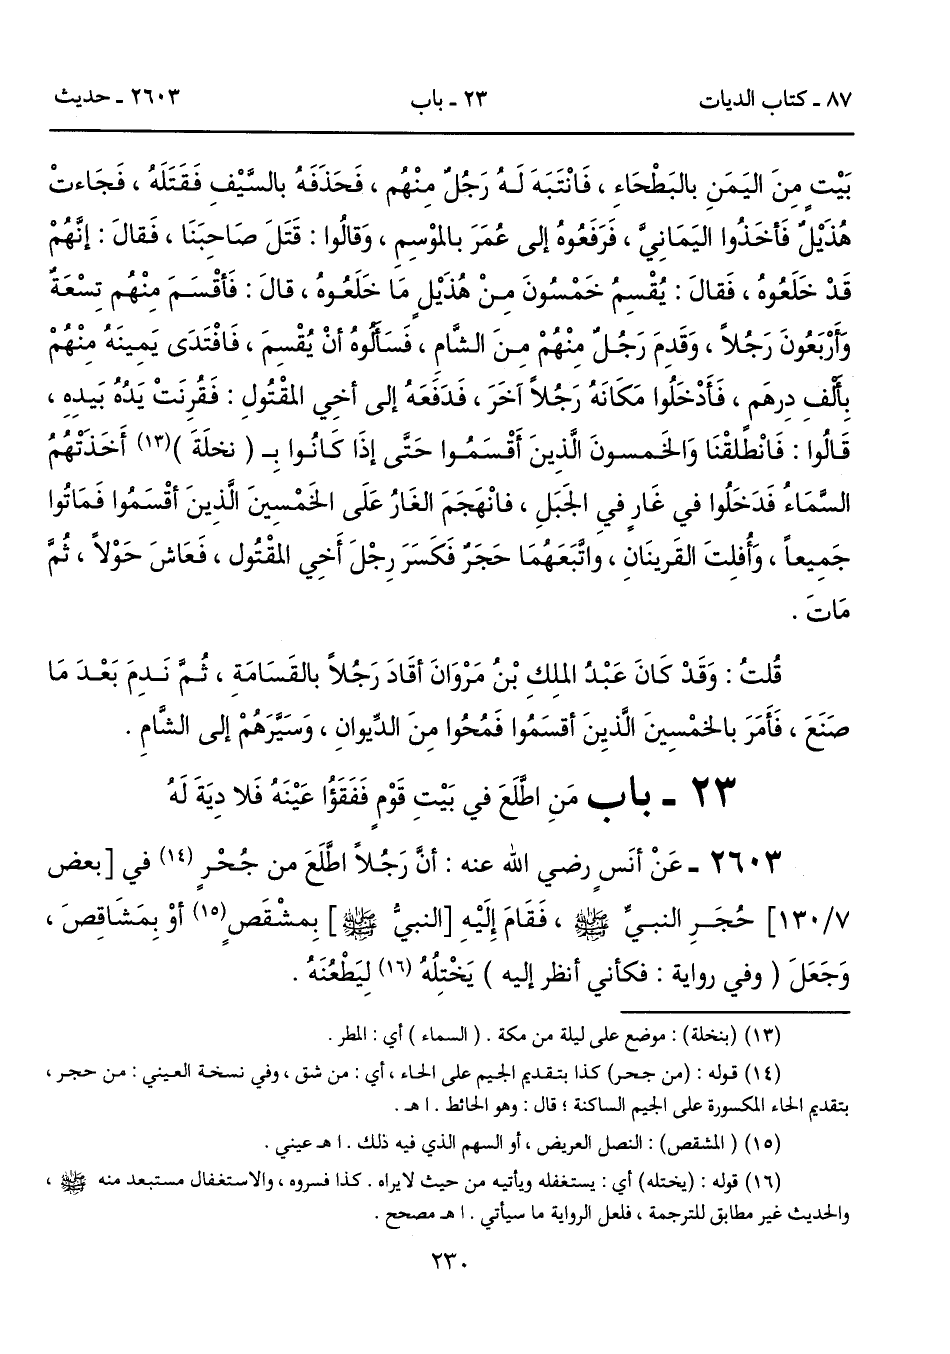 ٨٧ ـ كتاب الديات ٢٣ ـ باب ٢٦٠٣ ـ حديث
بَيْتٍ مِنَ اليَمَنِ بالبَطْحَاءِ ، فَانْتَبَهَ لَـهُ رَجُلٌ مِنْهُم ، فَحَذَفَهُ بالسَّيْفِ فَقَتَلَهُ ، فَجَاءتْ
هُذَيْلٌ فَأخَذُوا اليَمَانيَّ ، فَرَفَعُوهُ إلى عُمَرَ بالمَوْسِمِ ، وَقالُوا : قَتَلَ صَاحِبَنَا ، فَقالَ : إنَّهُمْ
قَدْ خَلَعُوهُ ، فَقالَ : يُقْسِمُ خَمْسُونَ مِـنْ هُذَيْلٍ مَا خَلَعُـوهُ ، قالَ : فَأقْسَـمَ مِنْهُـم تِسْعَةٌ
وَأرْبَعُونَ رَجُلاً ، وَقَدِمَ رَجُـلٌ مِنْهُمْ مِـنَ الشَّامِ ، فَسَألُوهُ أنْ يُقْسِمَ ، فَافْتَدَى يَمِينَهُ مِنْهُمْ
بِألْفِ دِرهَمٍ ، فَأدْخَلُوا مَكَانَهُ رَجُلاً آخَرَ ، فَدَفَعَهُ إلى أخي المَقْتُولِ : فَقُرِنَتْ يَدُهُ بِيَدِهِ ،
قَالُوا : فَانْطلَقْنَا وَالخَمسونَ الَّذِينَ أقْسَمُـوا حَتَّى إذَا كَانُـوا بِـ ( نخلَةَ )(١٣) أخَذَتْهُمُ
السَّمَاءُ فَدَخَلُوا في غَارٍ في الجَبَلِ ، فانْهَجَمَ الغَارُ عَلَى الخَمْسِينَ الَّذِينَ أقْسَمُوا فَماتُوا
جَمِيعاً ، وَأُفلِتَ القَرِينَانِ ، واتَّبَعَهُمَا حَجَرٌ فَكَسَرَ رِجْلَ أَخي المَقْتُول ، فَعَاشَ حَوْلاً ، ثُمَّ
مَاتَ .
قُلتُ : وَقَدْ كانَ عَبْدُ الملِكِ بْنُ مَرْوَانَ أقَادَ رَجُلاً بالقَسَامَةِ ، ثُـمَّ نَـدِمَ بَعْـدَ مَا
صَنَعَ ، فَأمَرَ بالخمْسِينَ الَّذِينَ أقسَمُوا فَمُحُوا مِنَ الدِّيوانِ ، وَسَيَّرَهُمْ إلى الشَّامِ .
٢٣ ـ باب مَنِ اطَّلَعَ في بَيْتِ قَوْمٍ فَفَقَؤُا عَيْنَهُ فَلا دِيَةَ لَهُ
٢٦٠٣ ـ عَنْ أنَسٍ رضي الله عنه : أنَّ رَجُلاً اطَّلَعَ من جُحْرٍ (١٤) في [بعض
١٣٠/٧] حُجَرِ النبيِّ ﷺ ، فَقَامَ إلَيْهِ [النبيُّ ﷺ] بِمشْقَصٍ(١٥) أوْ بِمَشَاقِصَ ،
وَجَعَلَ ( وفي رواية : فكأني أنظر إليه ) يَخْتِلُهُ (١٦) لِيَطْعُنَهُ .
(١٣) (بنخلة) : موضع على ليلة من مكة . ( السماء ) أي : المطر .
(١٤) قوله : (من جحر) كذا بتقديم الجيم على الحاء ، أي : من شق ، وفي نسخة العيني : من حجر ،
بتقديم الحاء المكسورة على الجيم الساكنة ؛ قال : وهو الحائط . ا هـ .
(١٥) ( المشقص) : النصل العريض ، أو السهم الذي فيه ذلك . ا هـ عيني .
(١٦) قوله : (يختله) أي : يستغفله ويأتيه من حيث لايراه . كذا فسروه ، والاستغفال مستبعد منه ﷺ ،
والحديث غير مطابق للترجمة ، فلعل الرواية ما سيأتي . ا هـ مصحح .
٢٣٠